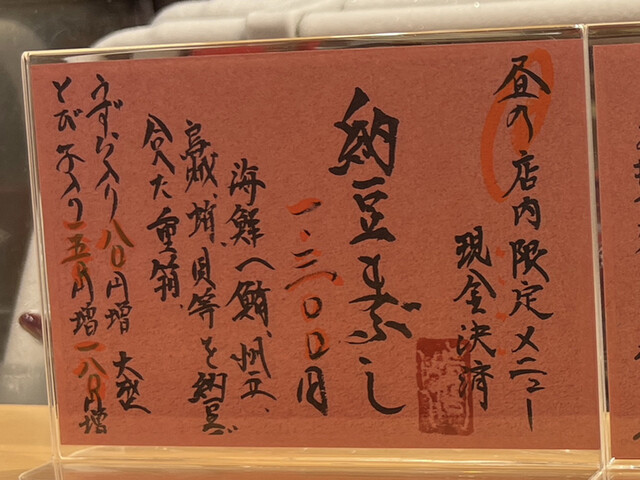 昼の店内限定メニュー
現金決済
納豆素し
一.三〇〇円
海鮮(鮪、帆立、
烏賊、蛸、貝等を納豆で
合へた重箱、
うずら入り八〇円増 大型
とび子入り一五〇円増一八〇円増